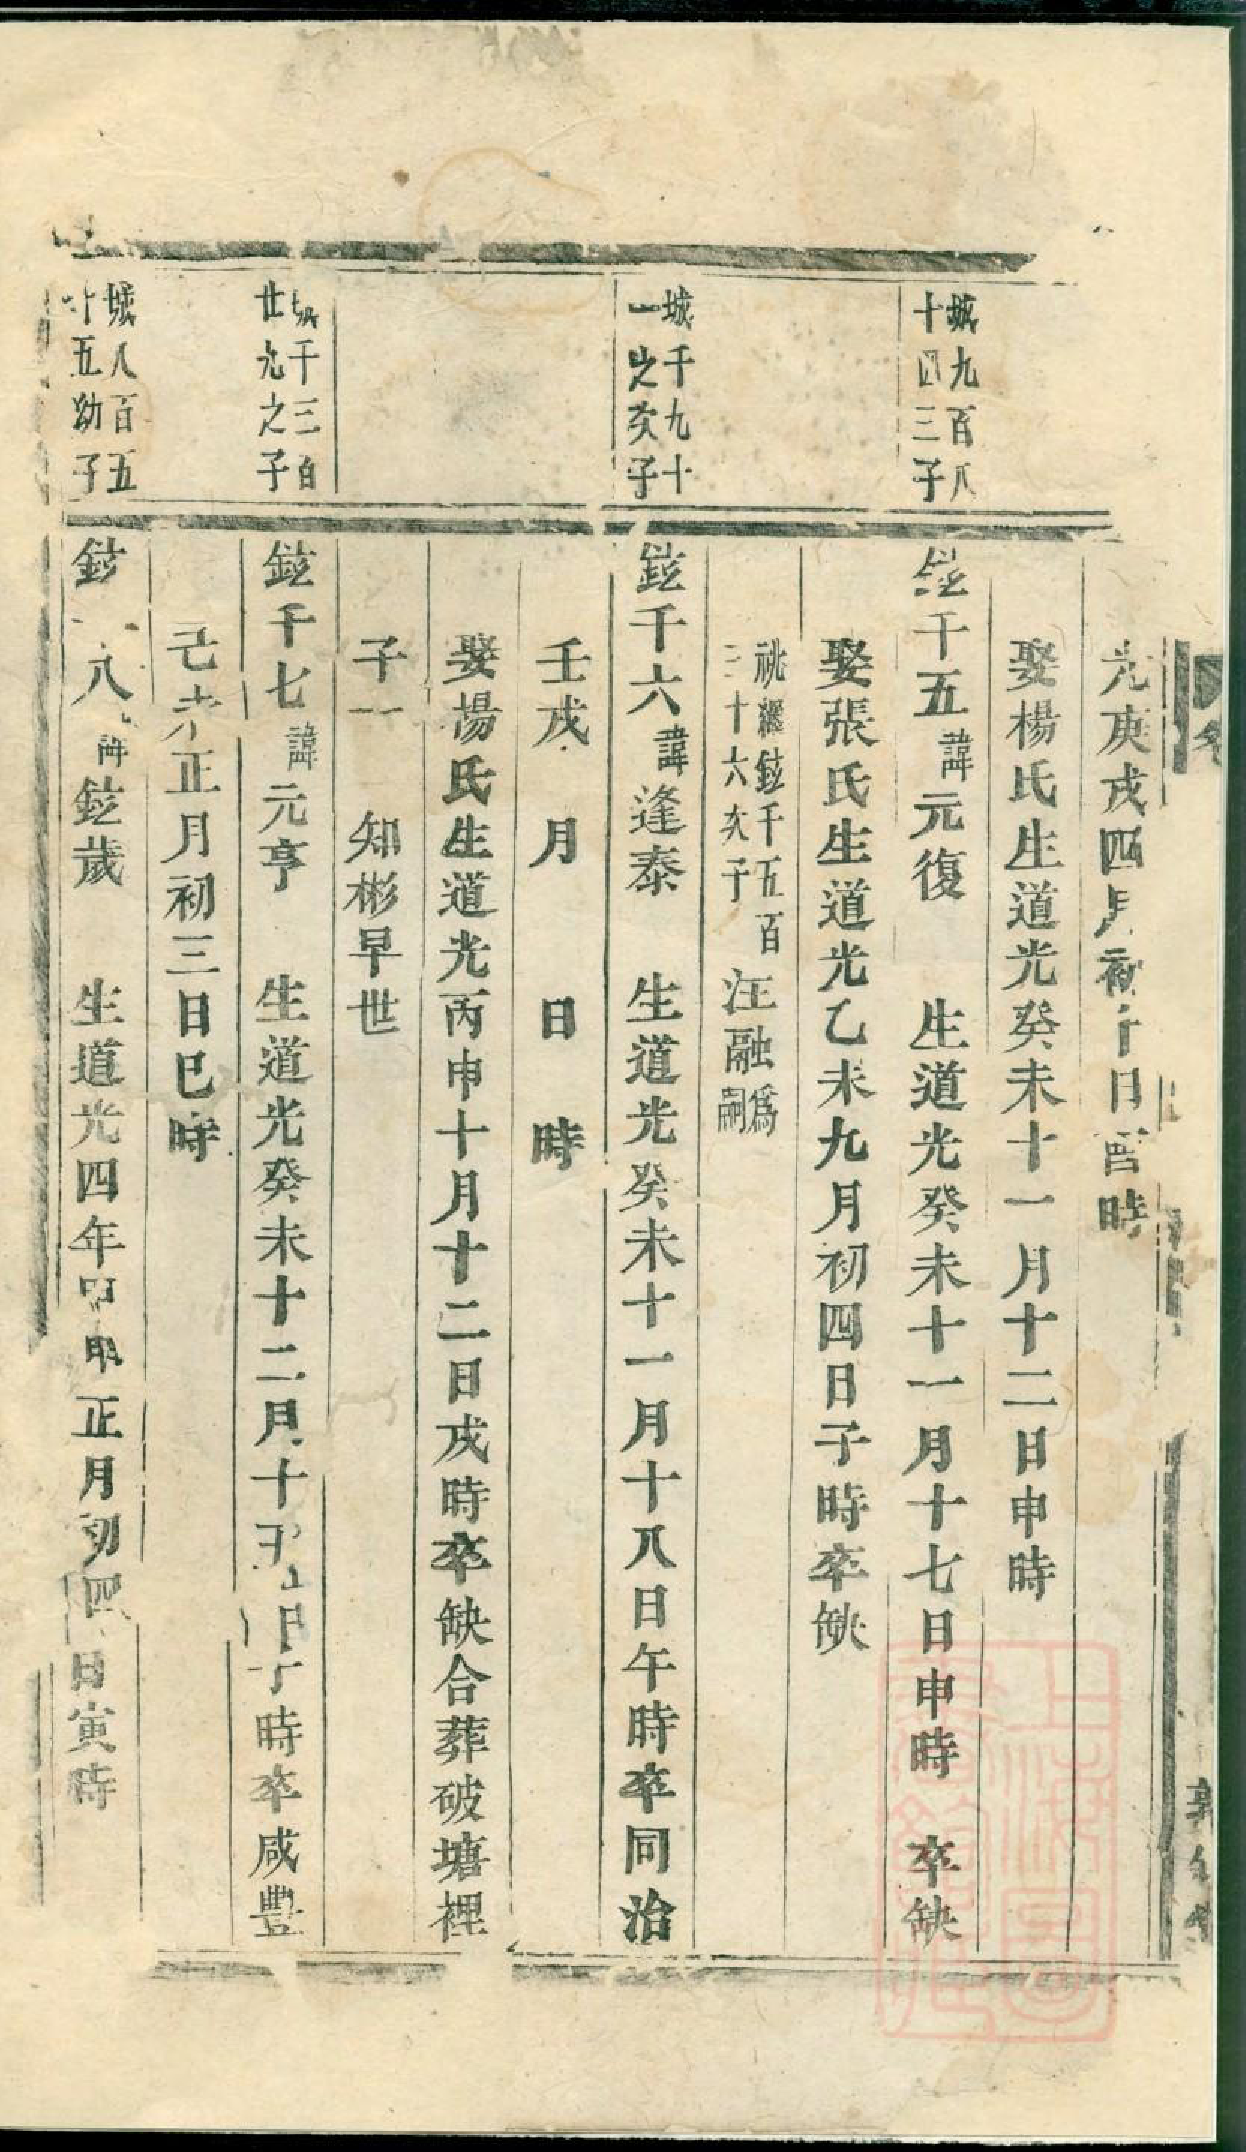 光庚戌四月初十日酉時
娶楊氏生道光癸未十一月十二日申時
城九百八
十四三子
鉉千五諱元復 生道光癸未十一月十七日申時 卒缺
娶張氏生道光乙未九月初四日子時卒缺
祧繼鉉千五百
三十六次子
汪融為嗣
城千九十
一之次子
鉉千六諱逢泰 生道光癸未十一月十八日午時卒同治
壬戌 月 日 時
娶楊氏生道光丙申十月十二日戌時卒缺合葬破塘裡
子一 知彬早世
城千三百
廿九之子
鉉千七諱元亨 生道光癸未十二月十五日子時卒咸豐
己未正月初三日巳時
城八百五
十五幼子
鉉 八諱鉉歲 生道光四年甲申正月初四日寅時
上海圖
書館藏